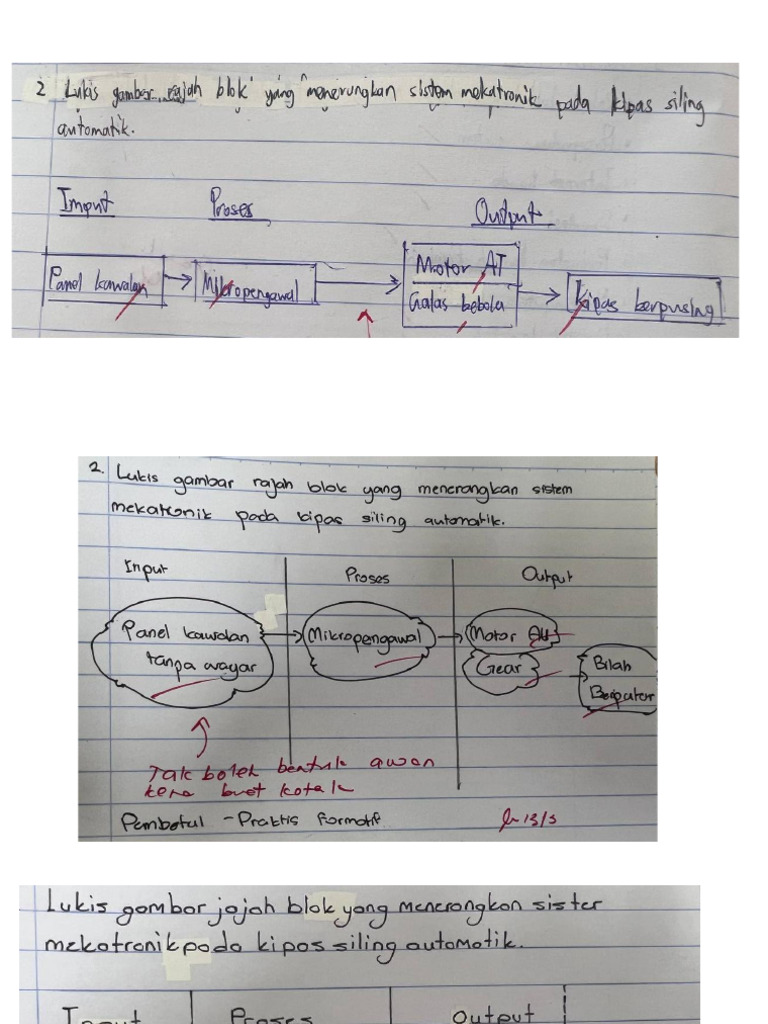 2 Lukis gambar rajah blok yang menerungkan sistem mekatronik pada kipas siling
automatik.
Imput Proses Output
Panel kawalan Mikropengawal Motor AT Kipas berpusing
Galas bebola
2. Lukis gambar rajah blok yang menerangkan sistem
mekatronik pada kipas siling automatik.
Input Proses Output
Panel kawalan Mikropengawal Motor AU
tanpa wayar Gear Bilah
Berputar
Tak boleh bentuk awan
kena buat kotak
Pembetul - Praktis Formatif 13/3
Lukis gambar jajah blok yang menerangkan sister
mekatronik pada kipas siling automatik.
Input Proses Output